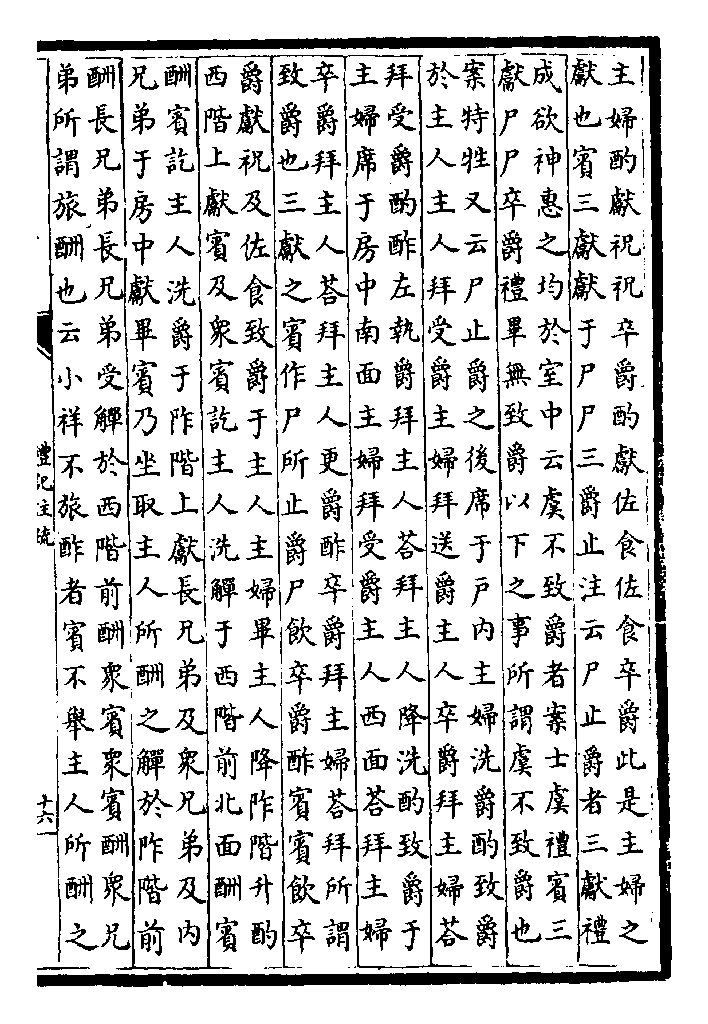 主婦酌獻祝祝卒爵酌獻佐食佐食卒爵此是主婦之
獻也賓三獻獻于尸尸三爵止注云尸止爵者三獻禮
成欲神惠之均於室中云虞不致爵者案士虞禮賓三
獻尸尸卒爵禮畢無致爵以下之事所謂虞不致爵也
案特牲又云尸止爵之後席于戸內主婦洗爵酌致爵
於主人主人拜受爵主婦拜送爵主人卒爵拜主婦荅
拜受爵酌酢左執爵拜主人荅拜主人降洗酌致爵于
主婦席于房中南面主婦拜受爵主人西面荅拜主婦
卒爵拜主人荅拜主人更爵酢卒爵拜主婦荅拜所謂
致爵也三獻之賓作尸所止爵尸飲卒爵酢賓賓飲卒
爵獻祝及佐食致爵于主人主婦畢主人降阼階升酌
西階上獻賓及衆賓訖主人洗觶于西階前北面酬賓
酬賓訖主人洗爵于阼階上獻長兄弟及衆兄弟及內
兄弟于房中獻畢賓乃坐取主人所酬之觶於阼階前
酬長兄弟長兄弟受觶於西階前酬衆賓衆賓酬衆兄
弟所謂旅酬也云小祥不旅酢者賓不舉主人所酬之
禮記注疏
十六